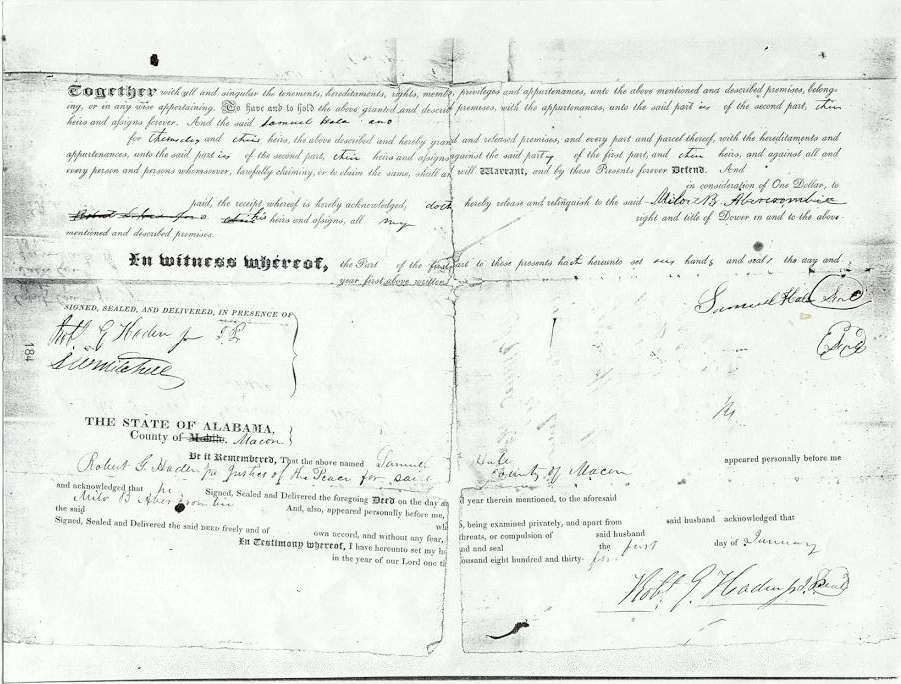 Together with all and singular the tenements, hereditaments, rights, membe privileges and appurtenances, unto the above mentioned and described premises, belong-
ing, or in any wise appertaining. To have and to hold the above granted and describ premises, with the appurtenances, unto the said part ies of the second part, their
heirs and assigns forever. And the said Samuel Hale and
for themselves and their heirs, the above described and hereby grant d and released premises, and every part and parcel thereof, with the hereditaments and
appurtenances, unto the said part ies of the second part, their heirs and assigns against the said party of the first part, and their heirs, and against all and
every person and persons whomsoever, lawfully claiming, or to claim the same, shall an will Warrant, and by these Presents forever Defend. And
in consideration of One Dollar, to
paid, the receipt whereof is hereby acknowledged, doth hereby release and relinquish to the said Milo B Abercrombie
heirs and assigns, all my right and title of Dower in and to the above
mentioned and described premises.
In witness whereof, the Part of the first part to these presents hath hereunto set our hands and seals the day and
year first above written
Samuel Hale Seal
Seal
SIGNED, SEALED, AND DELIVERED, IN PRESENCE OF
Robt G Haden J P
S W Mitchell
184
THE STATE OF ALABAMA,
County of Mobile. Macon
Be it Remembered, That the above named Samuel Hale appeared personally before me
Robert G. Haden Justice of the Peace for said County of Macon
and acknowledged that he Signed, Sealed and Delivered the foregoing Deed on the day an d year therein mentioned, to the aforesaid
Milo B Abercrombie And, also, appeared personally before me,
the said wh , being examined privately, and apart from said husband acknowledged that
Signed, Sealed and Delivered the said DEED freely and of own accord, and without any fear, threats, or compulsion of said husband
In Testimony whereof, I have hereunto set my h nd and seal the first day of January
in the year of our Lord one t ousand eight hundred and thirty-
Robt G. Haden J.P. Seal